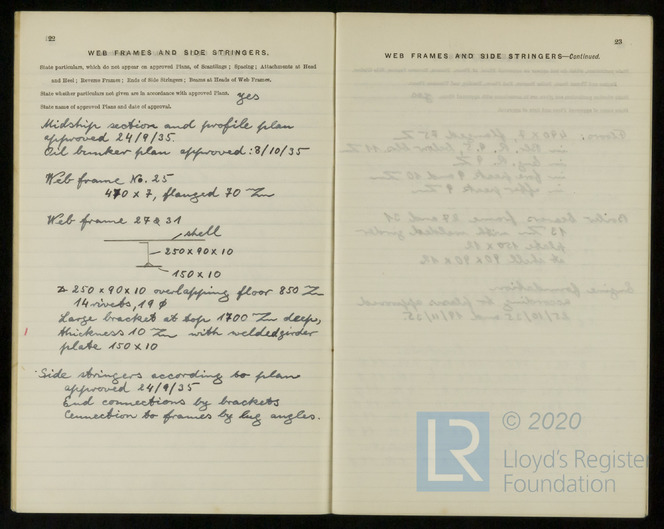 22
WEB FRAMES AND SIDE STRINGERS.
State particulars, which do not appear on approved Plans, of Scantlings ; Spacing ; Attachments at Head
and Heel ; Reverse Frames ; Ends of Side Stringers ; Beams at Heads of Web Frames.
State whether particulars not given are in accordance with approved Plans. yes
State name of approved Plans and date of approval.
Midship section and profile plan
approved 24/9/35.
Oil bunker plan approved: 8/10/35
Web frame No. 25
470 x 7, flanged 70 m/m
Web frame 27 & 31
shell
250 x 90 x 10
150 x 10
250 x 90 x 10 overlapping floor 850 m/m
14 rivets, 19 ø
Large bracket at top 1700 m/m deep,
thickness 10 m/m with welded girder
plate 150 x 10
Side stringers according to plan
approved 24/9/35
End connections by brackets
Connection to frames by lug angles.
23
WEB FRAMES AND SIDE STRINGERS—Continued.
LR
© 2020
Lloyd's Register
Foundation